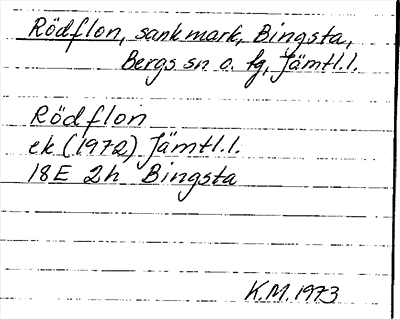 Rödflon, sankmark, Bingsta,
Bergs sn o. tg, Jämtl.l.
Rödflon
ek (1972) Jämtl.l.
18E 2h Bingsta
K.M. 1973